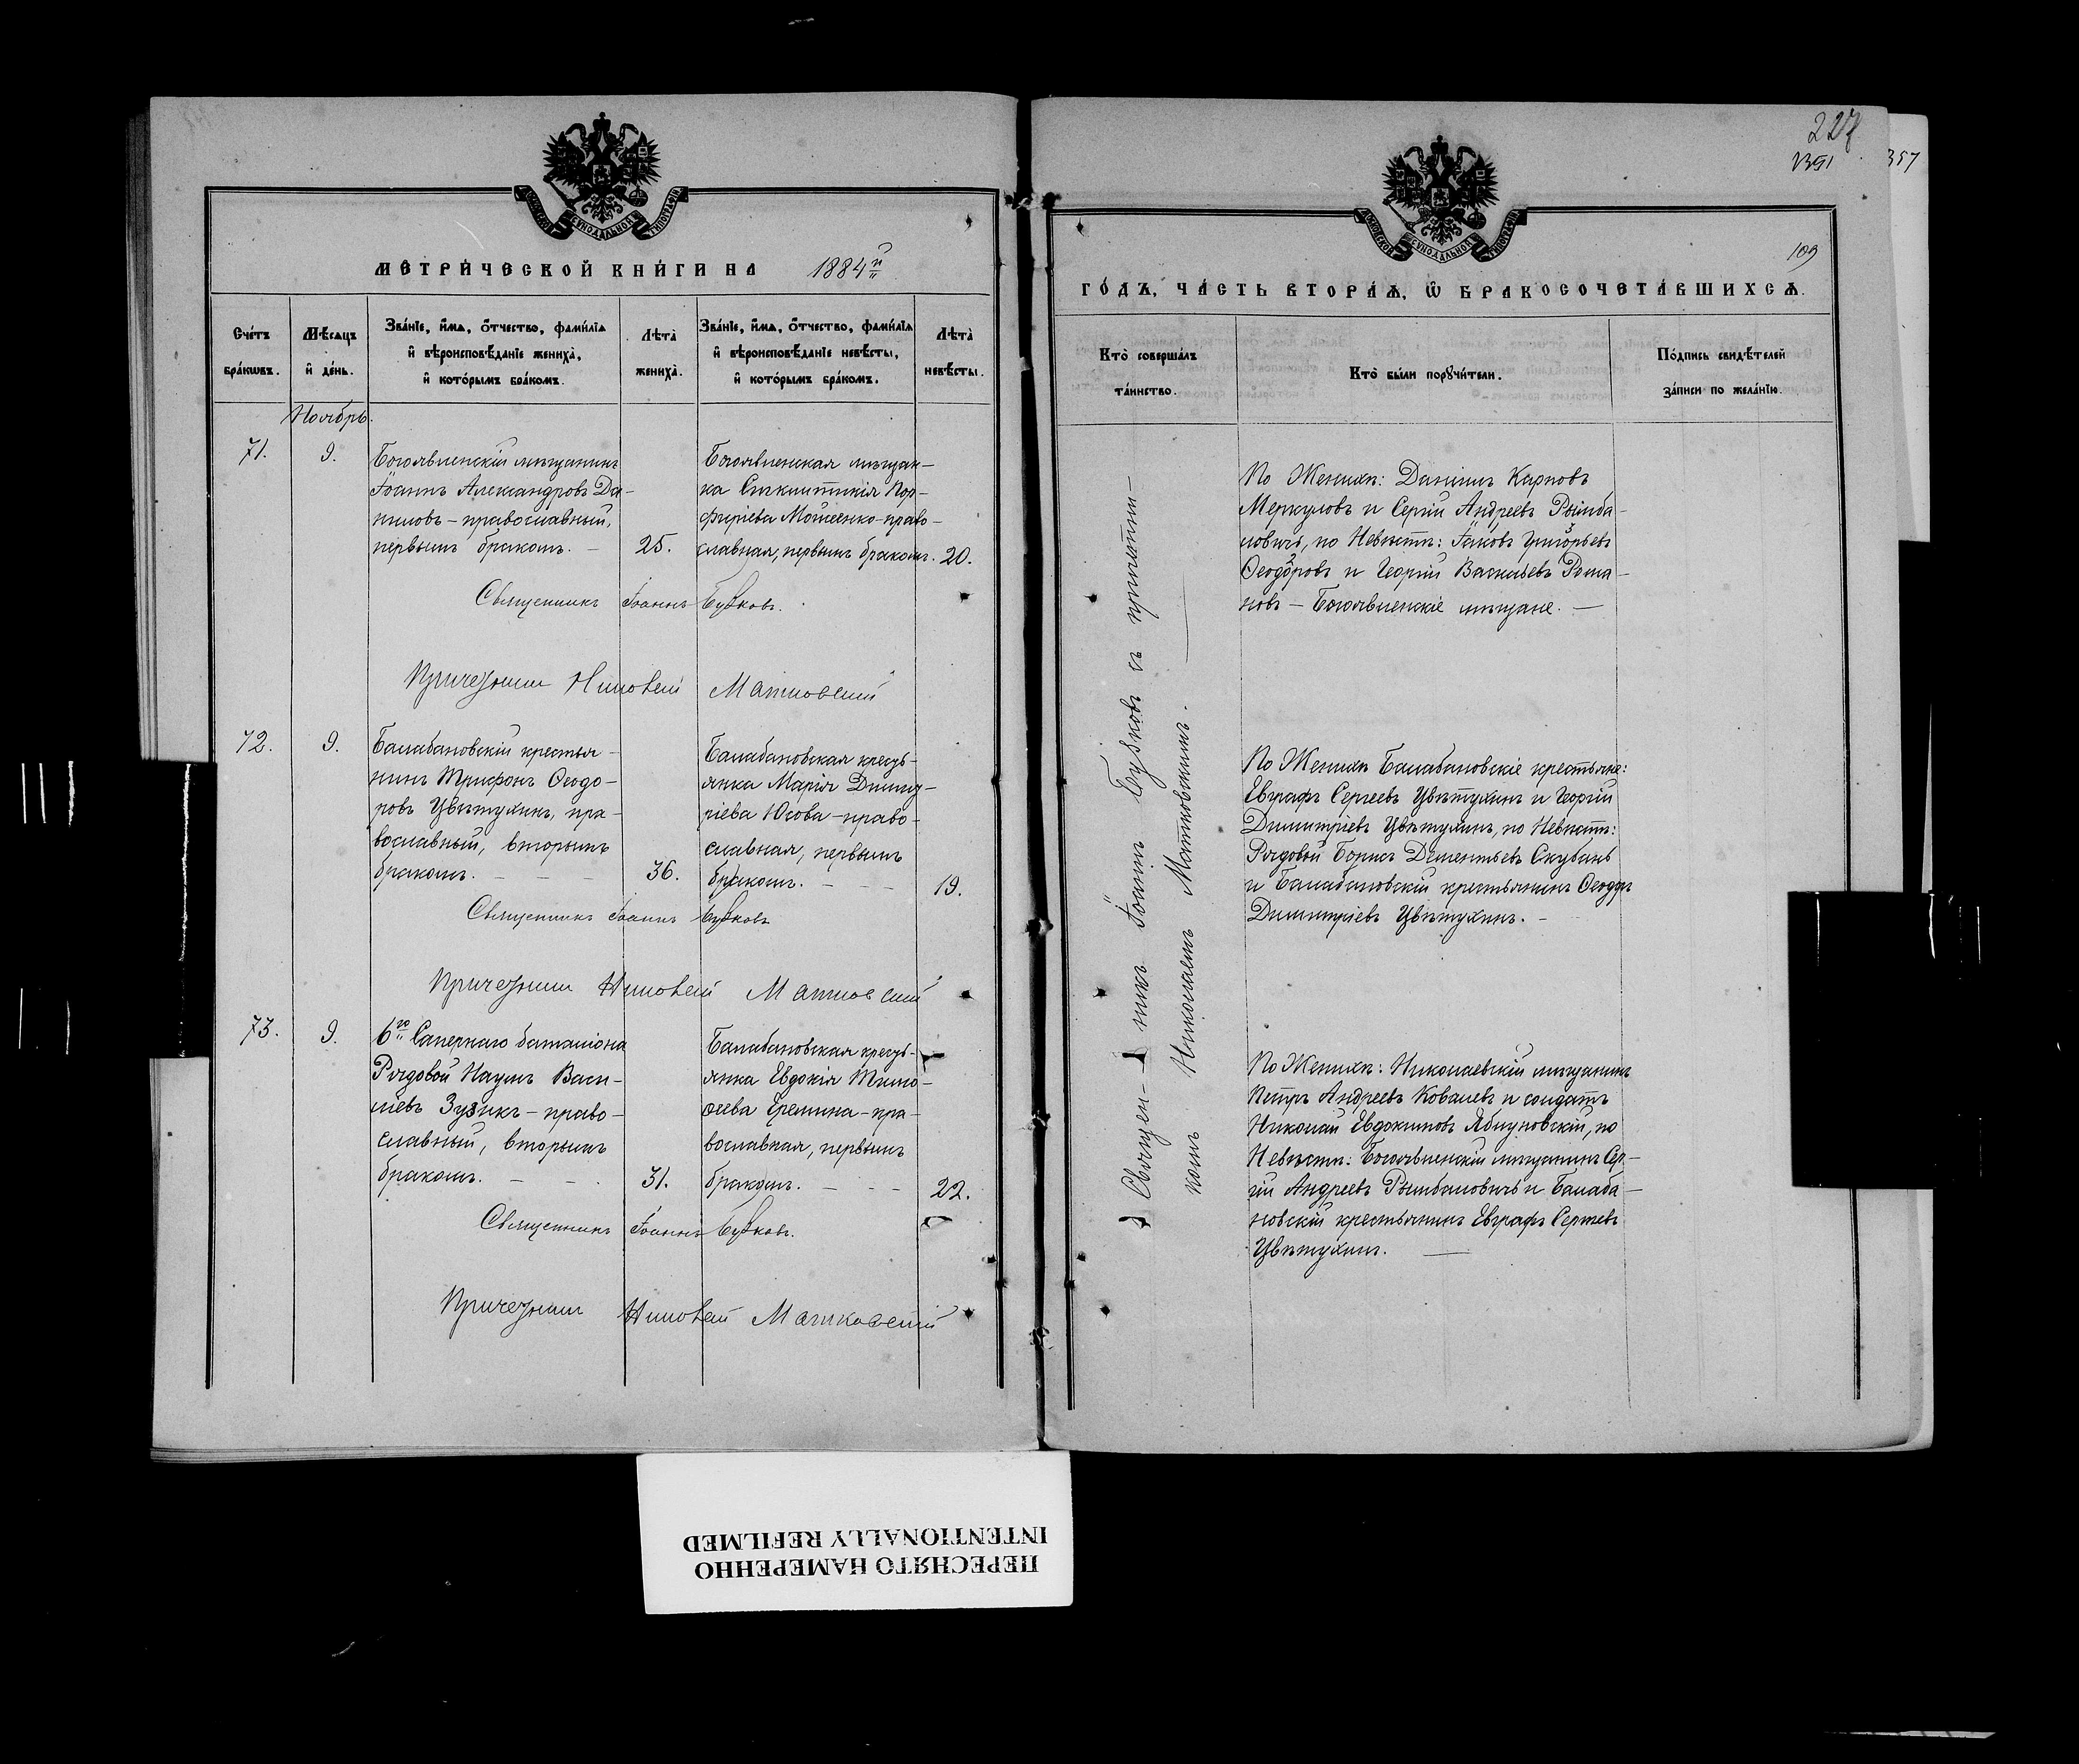 МОСКОВСКОЙ СѴНОДАЛЬНОЙ ТИПОГРАФІИ
МЕТРИ́ЧЕСКОЙ КНИ́ГИ НА 1884й
Сче́тъ бра́кωвъ.
Мѣ́сяцъ и҆ де́нь.
Зва́нїе, и҆́мѧ, ѻ҆́тчество, фамі́лїа
и҆ вѣроисповѣ́данїе жениха̀,
и҆ кото́рымъ бра́комъ.
Лѣта̀ жениха̀.
Зва́нїе, и҆́мѧ, ѻ҆́тчество, фамі́лїа
и҆ вѣроисповѣ́данїе невѣ́сты,
и҆ кото́рымъ бра́комъ.
Лѣта̀ невѣ́сты.
Ноябрь.
71.
9.
Богоявленскій мѣщанинъ
Іоаннъ Александровъ Да-
ниловъ - православный,
первымъ бракомъ. -
25.
Богоявленская мѣщан-
ка Сѵнклитикія Пор-
фиріева Мойсеенко - право-
славная, первымъ бракомъ.
20.
Священникъ Іоаннъ Бубковъ.
Причетникъ Николай Матковскій
72.
9.
Балабановскій крестья-
нинъ Трифонъ Ѳеодо-
ровъ Цвѣтухинъ, пра-
вославный, вторымъ
бракомъ. - - -
36.
Балабановская кресть-
янка Марія Димит-
ріева Юсова - право-
славная, первымъ
бракомъ. - - -
19.
Священникъ Іоаннъ Бубковъ
Причетникъ Николай Матковскій
73.
9.
6го Сапернаго баталіона
Рядовой Наумъ Васи-
льевъ Зузикъ - право-
славный, вторымъ
бракомъ. - - -
31.
Балабановская кресть-
янка Евдокія Тимо-
ѳеева Еремина - пра-
вославная, первымъ
бракомъ. - - -
22.
Священникъ Іоаннъ Бубковъ.
Причетникъ Николай Матковскій
227
357
109
МОСКОВСКОЙ СѴНОДАЛЬНОЙ ТИПОГРАФІИ
ГО́ДЪ, ЧА́СТЬ ВТОРА́Ѧ, Ѡ҆ БРАКОСОЧЕТА́ВШИХСѦ.
Кто̀ соверша́лъ та́инство.
Кто̀ бы́ли порꙋчи́тели.
По́дпись свидѣ́телей за́писи по жела́нїю.
Священникъ Іоаннъ Бубковъ съ причетни-
комъ Николаемъ Матковскимъ.
По Женихѣ: Даніилъ Карповъ
Меркуловъ и Сергій Андреевъ Рымба-
ловичъ, по Невѣстѣ: Іаковъ Григорьевъ
Ѳеодоровъ и Георгій Васильевъ Рома-
новъ - Богоявленскіе мѣщане. -
По Женихѣ Балабановскіе крестьяне:
Евграфъ Сергеевъ Цвѣтухинъ и Георгій
Димитріевъ Цвѣтухинъ, по Невѣстѣ:
Рядовой Борисъ Дементьевъ Скубань
и Балабановскій крестьянинъ Ѳеодоръ
Димитріевъ Цвѣтухинъ. -
По Женихѣ: Николаевскій мѣщанинъ
Петръ Андреевъ Ковалевъ и солдатъ
Николай Евдокимовъ Яблуновскій, по
Невѣстѣ: Богоявленскій мѣщанинъ Сер-
гій Андреевъ Рымбаловичъ и Балаба-
новскій крестьянинъ Евграфъ Сергеевъ
Цвѣтухинъ.
ПЕРЕСНЯТО НАМЕРЕННО
INTENTIONALLY REFILMED